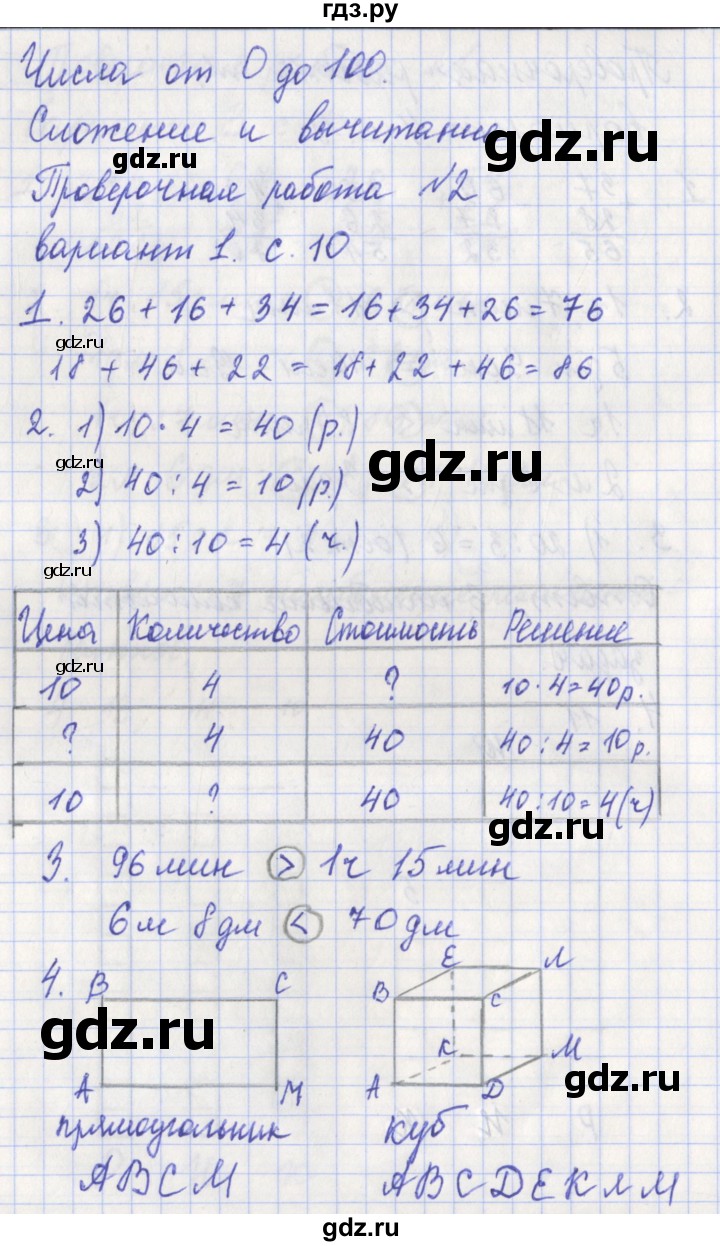 гдз.ру
Числа от 0 до 100.
Сложение и вычитание
gdz.ru
gdz.ru
Проверочная работа №2
вариант 1. с. 10
1. 26 + 16 + 34 = 16 + 34 + 26 = 76
gdz.ru
18 + 46 + 22 = 18 + 22 + 46 = 86
2. 1) 10 · 4 = 40 (р.)
gdz.ru
gdz.ru
2) 40 : 4 = 10 (р.)
3) 40 : 10 = 4 (ч.)
gdz.ru
Цена Количество Стоимость Решение
gdz.ru
10 4 ? 10 · 4 = 40р.
? 4 40 40 : 4 = 10р.
10 ? 40 40 : 10 = 4(ч)
gdz.ru
3. 96 мин > 1ч 15 мин
6м 8дм < 70 дм
4. В С Е Л
В С
gdz.ru
К М
А М А Д
gdz.ru
прямоугольник куб
АВСМ АВСДЕКЛМ
gdz.ru